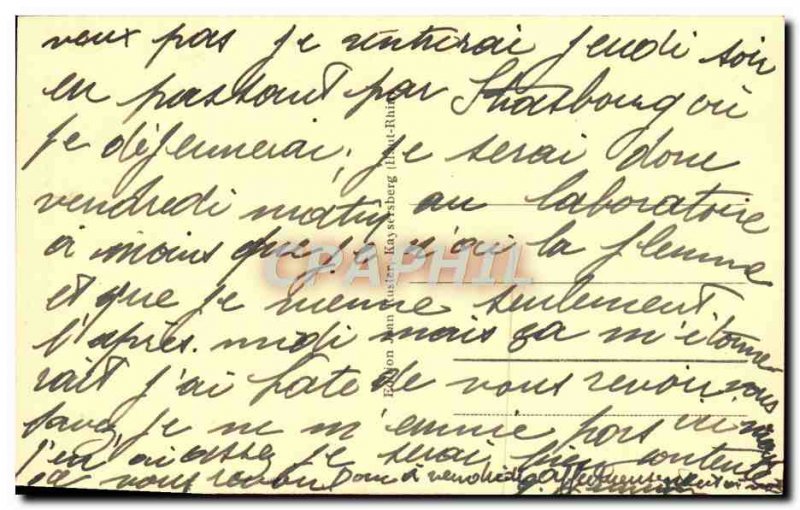 veux pas je rentrerai jeudi soir
en passant par Strasbourg où
je déjeunerai, je serai donc
vendredi matin au laboratoire
à moins que je n'ai la flemme
et que je vienne seulement
l'après-midi mais ça m'étonne-
rait j'ai hate de vous revoir vous
savez je ne m'ennuie pas ici mais
j'en ai assez je serai bien contente
de vous revoir Donc à vendredi Affectueusement
Edition Jean Kuster, Kaysersberg (Haut-Rhin)
CPAPHIL